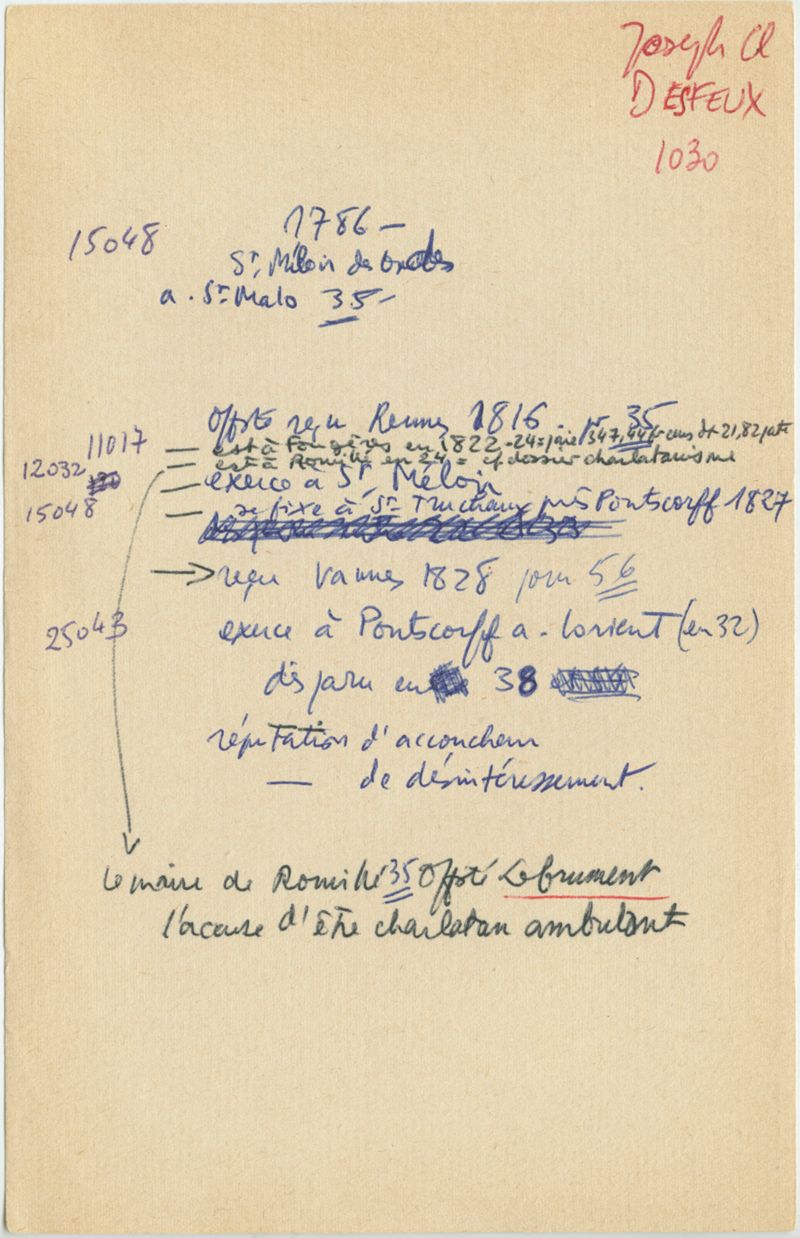 Joseph Cl
DESFEUX
1030
15048 1786 —
St. Méloir des Ondes
a. St Malo 35 —
Offté reçu Rennes 1816. pr 35
11017 — est à Fougères en 1822-24 = paie 347,44 cens dt 21,82 pate
12032 — est à Romillé en 24 = cf dossier charlatanisme
— exerce a St. Méloir
15048 — se fixe à St Truchaux près Pontscorff 1827
→ reçu Vannes 1828 pour 56
25043 exerce à Pontscorff a. Lorient (en 32)
disparu en 38
réputation d'accoucheur
— de désintéressement.
le maire de Romillé 35 Offté Lebrument
l'accuse d'être charlatan ambulant